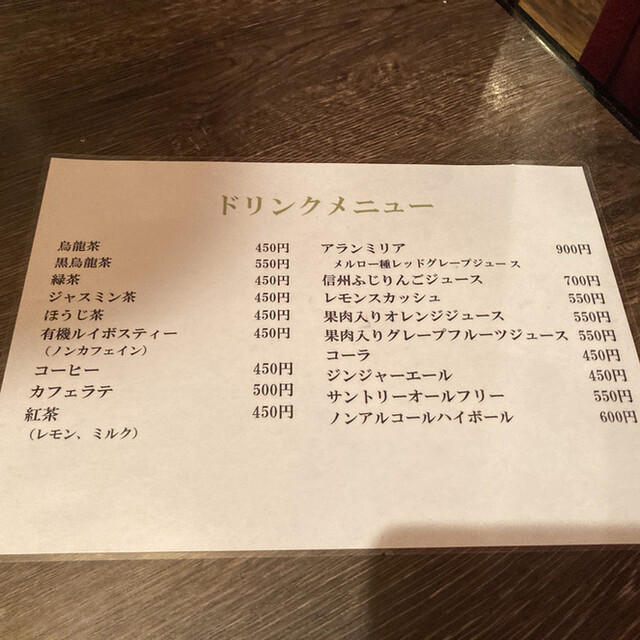 ドリンクメニュー
烏龍茶 450円
黒烏龍茶 550円
緑茶 450円
ジャスミン茶 450円
ほうじ茶 450円
有機ルイボスティー 450円
（ノンカフェイン）
コーヒー 450円
カフェラテ 500円
紅茶 450円
（レモン、ミルク）
アランミリア 900円
メルロー種レッドグレープジュース
信州ふじりんごジュース 700円
レモンスカッシュ 550円
果肉入りオレンジジュース 550円
果肉入りグレープフルーツジュース 550円
コーラ 450円
ジンジャーエール 450円
サントリーオールフリー 550円
ノンアルコールハイボール 600円